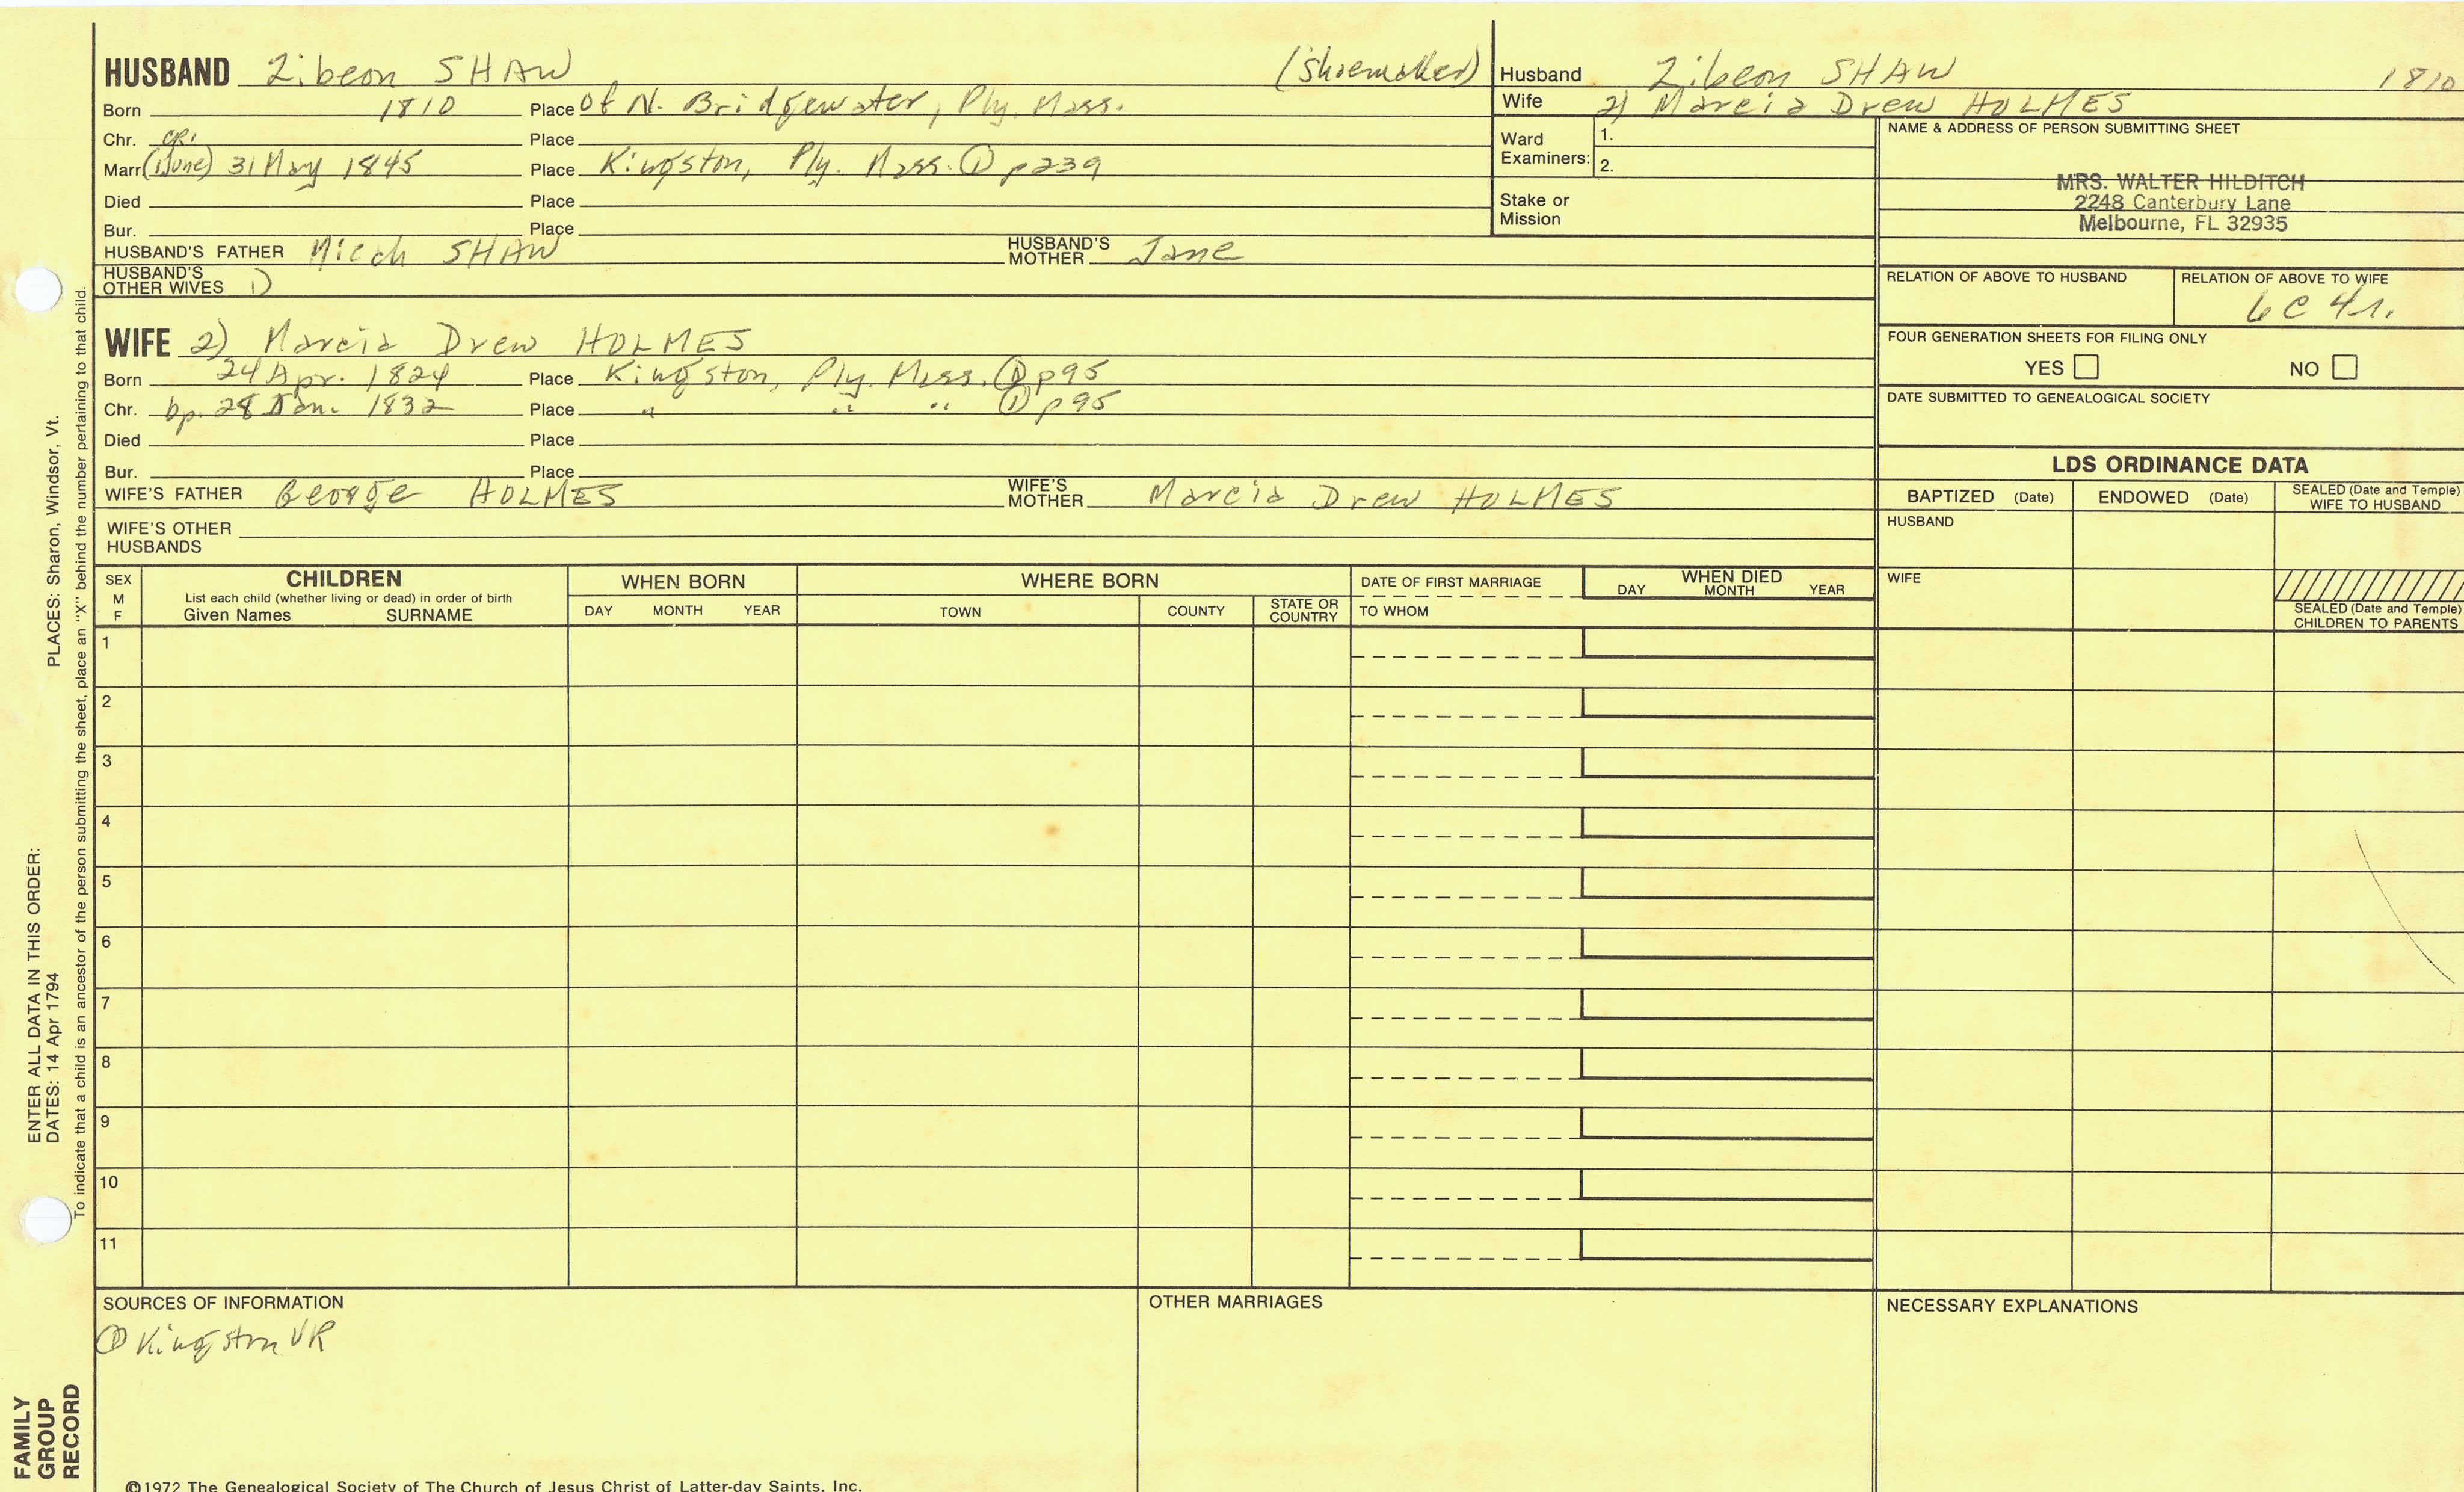 HUSBAND Zibeon SHAW (shoemaker)
Born 1810 Place of N. Bridgewater, Ply. Mass.
Chr. CR1 Place
Marr. (1 June) 31 May 1845 Place Kingston, Ply. Mass. ① p239
Died Place
Bur. Place
HUSBAND'S FATHER Micah SHAW HUSBAND'S MOTHER Jane
HUSBAND'S OTHER WIVES 1)
WIFE 2) Marcia Drew HOLMES
Born 24 Apr. 1824 Place Kingston, Ply. Mass. ① p95
Chr. bp. 28 Jan. 1832 Place " " " ① p95
Died Place
Bur. Place
WIFE'S FATHER George HOLMES WIFE'S MOTHER Marcia Drew HOLMES
WIFE'S OTHER HUSBANDS
Husband Zibeon SHAW 1810
Wife 2) Marcia Drew HOLMES
Ward Examiners: 1.
2.
Stake or Mission
NAME & ADDRESS OF PERSON SUBMITTING SHEET
MRS. WALTER HILDITCH
2248 Canterbury Lane
Melbourne, FL 32935
RELATION OF ABOVE TO HUSBAND RELATION OF ABOVE TO WIFE
6C 4r.
FOUR GENERATION SHEETS FOR FILING ONLY
YES NO
DATE SUBMITTED TO GENEALOGICAL SOCIETY
LDS ORDINANCE DATA
BAPTIZED (Date) ENDOWED (Date) SEALED (Date and Temple) WIFE TO HUSBAND
HUSBAND
WIFE
SEALED (Date and Temple) CHILDREN TO PARENTS
SEX M F
CHILDREN
List each child (whether living or dead) in order of birth
Given Names SURNAME
WHEN BORN
DAY MONTH YEAR
WHERE BORN
TOWN COUNTY STATE OR COUNTRY
DATE OF FIRST MARRIAGE
TO WHOM
WHEN DIED
DAY MONTH YEAR
1
2
3
4
5
6
7
8
9
10
11
SOURCES OF INFORMATION
① Kingston VR
OTHER MARRIAGES
NECESSARY EXPLANATIONS
©1972 The Genealogical Society of The Church of Jesus Christ of Latter-day Saints, Inc.
FAMILY GROUP RECORD
ENTER ALL DATA IN THIS ORDER:
DATES: 14 Apr 1794 PLACES: Sharon, Windsor, Vt.
To indicate that a child is an ancestor of the person submitting the sheet, place an "X" behind the number pertaining to that child.